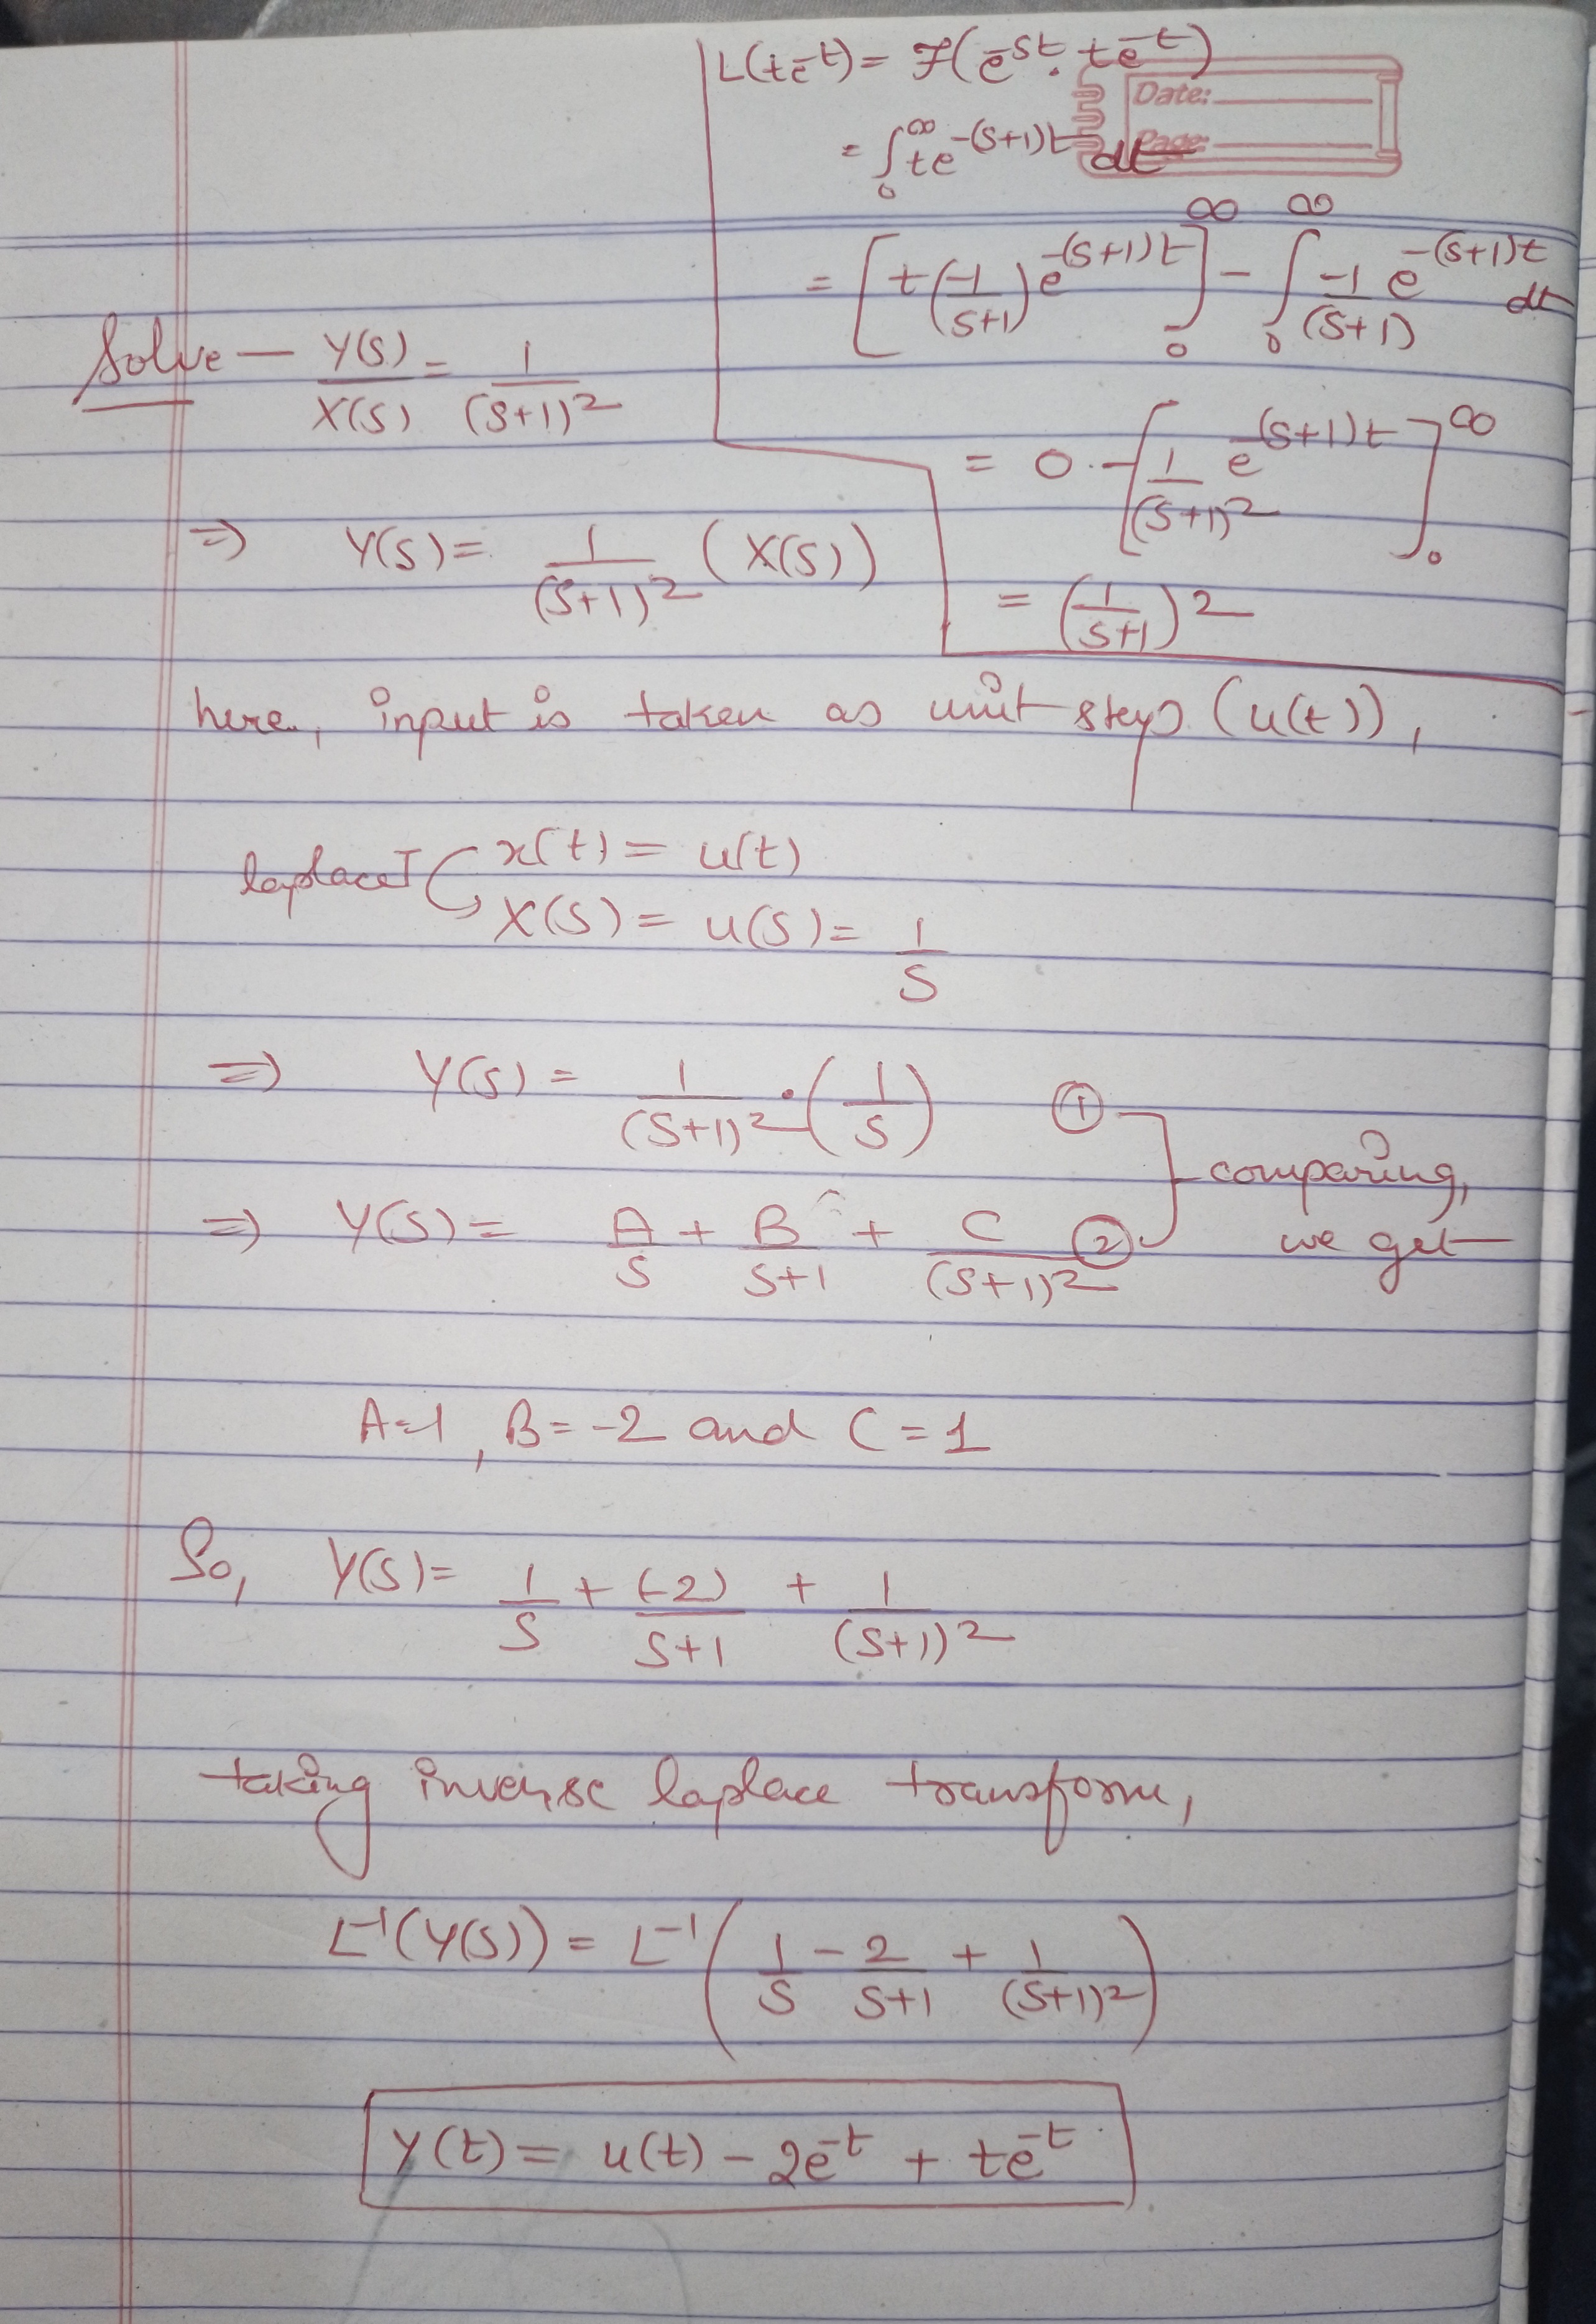 L(te^-t) = F(e^-st . te^-t)
Date:
Page:
= ∫₀^∞ te^-(s+1)t dt
= [t(-1/(s+1)) e^-(s+1)t]₀^∞ - ∫₀^∞ -1/(s+1) e^-(s+1)t dt
= 0 - [1/(s+1)² e^-(s+1)t]₀^∞
= (1/(s+1))²
Solve - Y(s)/X(s) = 1/(s+1)²
⇒ Y(s) = 1/(s+1)² (X(s))
here, input is taken as unit step (u(t)),
laplace T x(t) = u(t)
X(s) = u(s) = 1/s
⇒ Y(s) = 1/(s+1)² . (1/s) ①
comparing,
⇒ Y(s) = A/s + B/(s+1) + C/(s+1)² ② we get-
A=1, B=-2 and C=1
So, Y(s) = 1/s + (-2)/(s+1) + 1/(s+1)²
taking inverse laplace transform,
L⁻¹(Y(s)) = L⁻¹(1/s - 2/(s+1) + 1/(s+1)²)
y(t) = u(t) - 2e^-t + te^-t